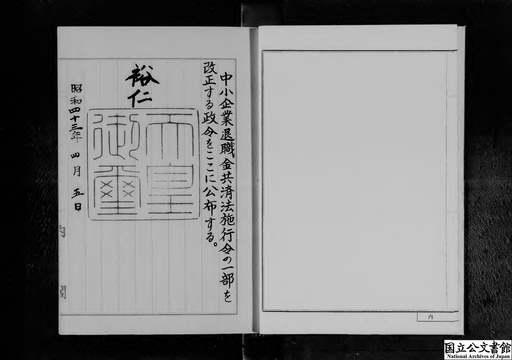 中小企業退職金共済法施行令の一部を
改正する政令をここに公布する。
裕仁
天皇
御璽
昭和四十三年四月五日
内
国立公文書館
National Archives of Japan